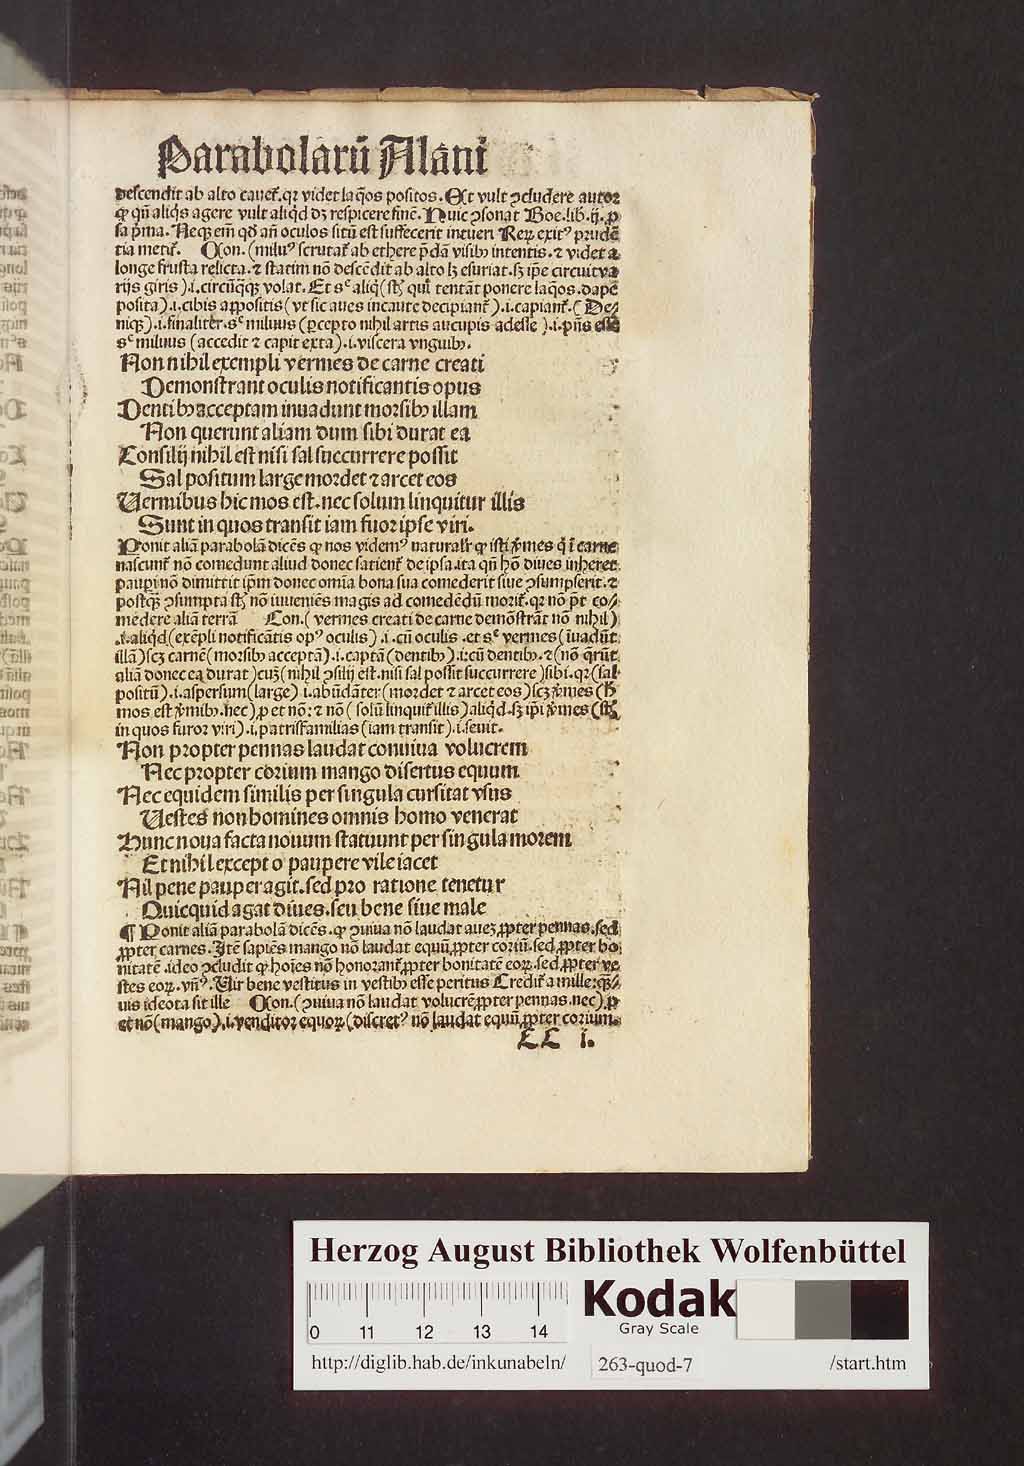 Parabolarū Alani
descendit ab alto cauet᷑. qꝛ videt laq̄os positos. Et vult ꝯcludere autor
ꝙ qn̄ aliq̄s agere vult aliqd̄ dꝫ respicere finē. Huic ꝯsonat Boe. lib. ij. ꝓ
sa p̄ma. Neqꝫ em̄ qd̄ an̄ oculos sitū est suffecerit intueri Reꝝ exitꝰ prudē
tia metit᷑. Con. (miluꝰ scrutat᷑ ab ethere p̄dā visibꝫ intentis. ⁊ videt a
longe frusta relicta. ⁊ statim nō descēdit ab alto lꝫ esuriat. sꝫ ip̄e circuit va
rijs giris) .i. circūqꝫ volat. Et sᶜ aliq̄ (sꝫ qui tentāt ponere laq̄os. dape
posita) .i. cibis appositis (vt sic aues incaute decipiant᷑) .i. capiant᷑. (De⸗
niqꝫ) .i. finaliter. sᶜ miluus (ꝑcepto nihil artis aucupis adesse) .i. pn̄s esse
sᶜ miluus (accedit ⁊ capit exta) .i. viscera vnguibꝫ.
Non nihil exempli vermes de carne creati
Demonstrant oculis notificantis opus
Dentibꝫ acceptam inuadunt morsibꝫ illam
Non querunt aliam dum sibi durat ea
Consilij nihil est nisi sal succurrere possit
Sal positum large mordet ⁊ arcet eos
Uermibus hic mos est. nec solum linquitur illis
Sunt in quos transit iam furor ipse viri.
Ponit aliā parabolā dicēs ꝙ nos videmꝰ naturalr̄ ꝙ isti v̄mes q̄ ī carne
nascunt᷑ nō comedunt aliud donec satient᷑ de ipsa. ita qn̄ hō diues inheret
pauꝑi nō dimittit ip̄m donec om̄ia bona sua comederit siue ꝯsumpserit. ⁊
postqꝫ ꝯsumpta sꝫ nō inueniēs magis ad comedēdū morit᷑. qꝛ nō pōt co⸗
medere aliā terrā Con. (vermes creati de carne demōstrāt nō nihil)
.i. aliqd̄ (exēpli notificātis opꝰ oculis) .i. cū oculis. et sᶜ vermes (īuadūt
illā) scꝫ carnē (morsibꝫ acceptā) .i. captā (dentibꝫ) .i. cū dentibꝫ. ⁊ (nō q̄rūt
aliā donec ea durat) cuꝫ (nihil ꝯsilij est. nisi sal possit succurrere) sibi. qꝛ (sal
positū) .i. aspersum (large) .i. abūdāter (mordet ⁊ arcet eos) scꝫ v̄mes (h̄
mos est v̄mibꝫ. nec) ꝓ et nō: ⁊ nō (solū linquit᷑ illis) aliqd̄. sꝫ ip̄i v̄mes (sꝫ
in quos furor viri) .i. patrisfamilias (iam transit) .i. seuit.
Non propter pennas laudat conuiua volucrem
Nec propter corium mango disertus equum
Nec equidem similis per singula cursitat vsus
Uestes non homines omnis homo venerat
Hunc noua facta nouum statuunt per singula morem
Et nihil excepto paupere vile iacet
Nil pene pauper agit. sed pro ratione tenetur
Quicquid agat diues. seu bene siue male
¶ Ponit aliā parabolā dicēs. ꝙ ꝯuiua nō laudat aueꝫ ꝓpter pennas. sed
ꝓpter carnes. Itē sapiēs mango nō laudat equū ꝓpter coriū. sed ꝓpter bo
nitatē. ideo ꝯcludit ꝙ hoīes nō honorant᷑ ꝓpter bonitatē eoꝝ. sed ꝓpter ve
stes eoꝝ. vn̄ꝰ. Uir bene vestitus in vestibꝫ esse peritus Credit᷑ a mille: qꝫ⸗
uis ideota sit ille Con. (ꝯuiua nō laudat volucrē ꝓpter pennas. nec) ꝓ
et nō (mango) .i. venditor equoꝝ (discretꝰ nō laudat equū ꝓpter corium.
LL i.
Herzog August Bibliothek Wolfenbüttel
0 11 12 13 14
Kodak
Gray Scale
http://diglib.hab.de/inkunabeln/ 263-quod-7 /start.htm